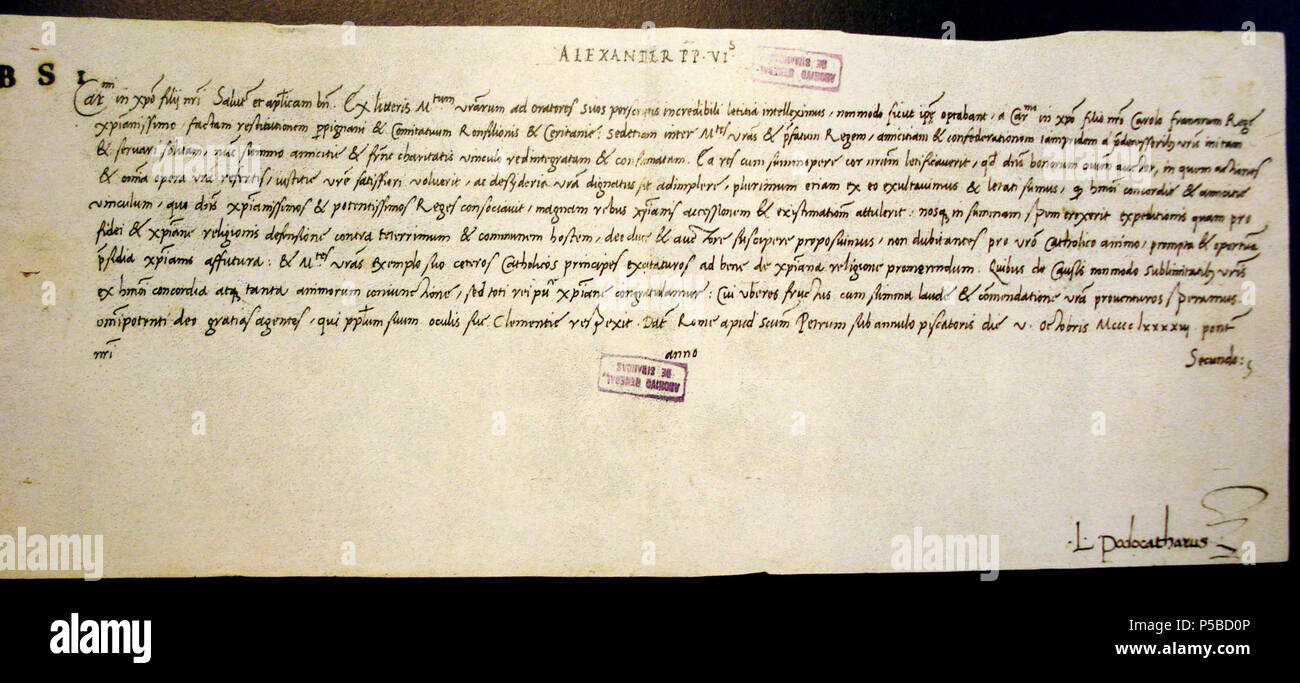 ALEXANDER P̄P̄·VI⁵
ARCHIVO GENERAL
DE SIMANCAS
B S I
Carᵐⁱ in xp̄o filij nr̄i Salut̄ et ap̄licam bn̄. Ex litteris Mᵗᵘᵐ vr̄arum ad oratores suos perscriptis incredibili letitia intelleximus, nonmodo sicut ip̄e optabant, a Carᵐᵒ in xp̄o filio nr̄o Carolo francorum Rege
xp̄ianissimo, factam restitutionem p̄pigniani & Comitatuum Ronsilionis & Ceritanie: Sedetiam inter Mᵗᵉˢ vr̄as & p̄fatum Regem, amicitiam & confederationem iampridem a p̄decessorib; vr̄is initam
& servari solitam, nūc summo amicitie & fr̄ne charitatis vinculo redintegratam & confirmatam. Ea res cum summopere cor nr̄um letificaverit, qđ dn̄s bonorum omn̄ auctor, in quem actiones
& om̄ia opera vr̄a refertis, iustitie vr̄e satisfieri voluerit, ac desyderia vr̄a dignatus sit adimplere, plurimum etiam ex eo exultavimus & letati sumus, q hm̄oi concordie & amicitie
vinculum, quo dn̄s xp̄ianissimos & potentissimos Reges consociavit, magnam rebus xp̄ianis accessionem & existimationem attulerit: nosq; in summam spem erexerit expeditionis quam pro
fidei & xp̄iane religionis defensione contra teterrimum & communem hostem, deo duce & auctore suscipere proposuimus, non dubitantes pro vr̄o Catholico animo, prompta & oportuna
p̄sidia xp̄ianis affutura: & Mᵗᵉˢ vr̄as exemplo suo ceteros Catholicos principes excitaturos ad bene de xp̄iana religione promerendum. Quibus de Causis nonmodo sublimitatib; vr̄is
ex hm̄oi concordia atq; tanta animorum coniunctione, sed toti rei pu͞ xp̄iane congratulamur: Cui uberes fructus cum summa laude & cōmendatione vr̄a proventuros speramus
om̄ipotenti deo gratias agentes, qui pp̄lum suum oculis sue Clementie respexit. Dat̄ Rome apud scūm Petrum sub annulo piscatoris die v. Octobris Mcccclxxxxiij pont̄
nr̄i anno Secundo:
ARCHIVO GENERAL
DE SIMANCAS
·L· Podocatharus
alamy
Image ID: P5BD0P
www.alamy.com